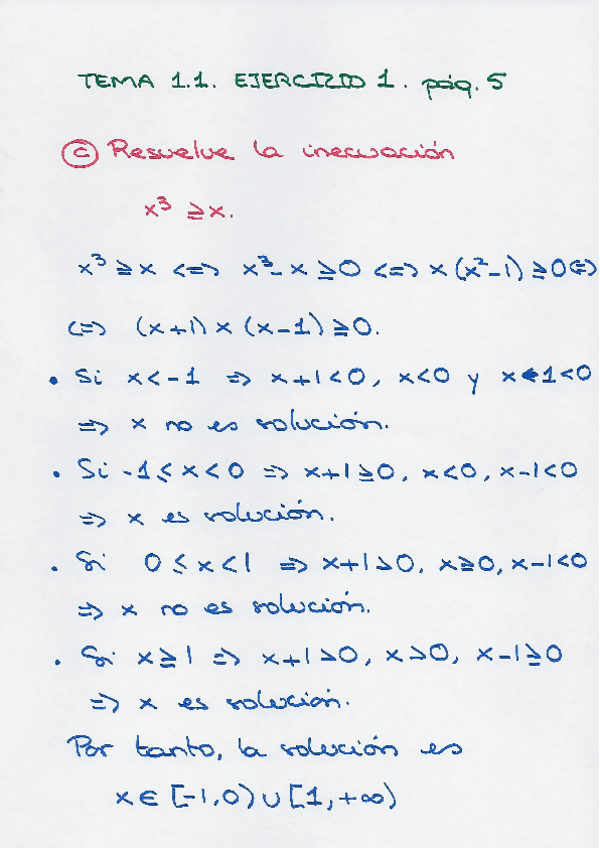 TEMA 1.1. EJERCICIO 1. pág. 5
c Resuelve la inecuación
x³ ≥ x.
x³ ≥ x <=> x³ - x ≥ 0 <=> x (x² - 1) ≥ 0 <=>
<=> (x + 1) x (x - 1) ≥ 0.
• Si x < -1 => x + 1 < 0, x < 0 y x - 1 < 0
=> x no es solución.
• Si -1 ≤ x < 0 => x + 1 ≥ 0, x < 0, x - 1 < 0
=> x es solución.
• Si 0 ≤ x < 1 => x + 1 > 0, x ≥ 0, x - 1 < 0
=> x no es solución.
• Si x ≥ 1 => x + 1 > 0, x > 0, x - 1 ≥ 0
=> x es solución.
Por tanto, la solución es
x ∈ [-1, 0) ∪ [1, +∞)